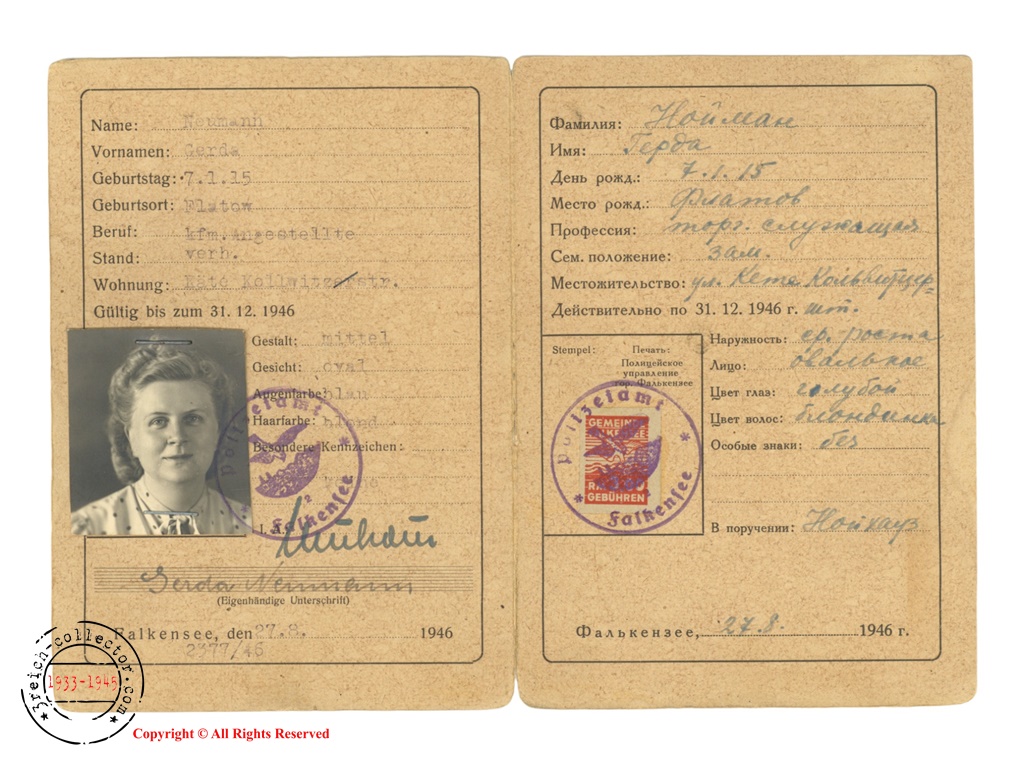 Name: Neumann
Vornamen: Gerda
Geburtstag: 7.1.15
Geburtsort: Flatow
Beruf: kfm.Angestellte
Stand: verh.
Wohnung: Käte Kollwitzerstr.
Gültig bis zum 31. 12. 1946
Gestalt: mittel
Gesicht: oval
Augenfarbe: blau
Haarfarbe: blond
Besondere Kennzeichen:
Polizeiamt
Falkensee
Neuhaus
Gerda Neumann
(Eigenhändige Unterschrift)
Falkensee, den 27.8. 1946
2377/46
Фамилия: Нойман
Имя: Герда
День рожд.: 7.1.15
Место рожд.: Флатов
Профессия: торг. служащая
Сем. положение: зам.
Местожительство: ул. Кете Кольвитцер-
Действительно по 31. 12. 1946 г. шт.
Stempel: Печать:
Полицейское
управление
гор. Фалькензее
Polizeiamt
Falkensee
GEMEINDE
GEBÜHREN
Наружность: ср. роста
Лицо: овальное
Цвет глаз: голубой
Цвет волос: блондинка
Особые знаки: без
В поручении: Нойхауз
Фалькензее, 27.8. 1946 г.
3reich-collector.com
1933-1945
Copyright © All Rights Reserved